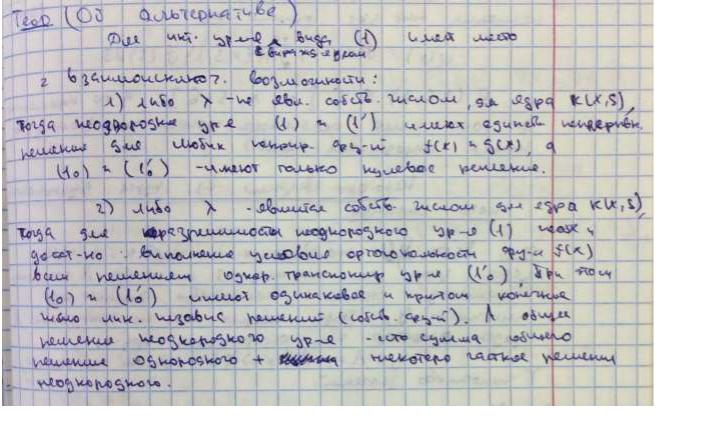 Теор (Об альтернативе.)
Для инт. ур-ия вида (1) имеет место
с вырожд ядром
2 взаимоисключ. возможности:
1) либо λ - не явл. собств. числом, для ядра K(x,s),
тогда неоднородные ур-я (1) и (1') имеют единств непрерывн.
решение для любых непрер. фун-й f(x) и g(x), а
(1₀) и (1'₀) - имеют только нулевое решение.
2) либо λ - является собств. числом для ядра K(x,s),
тогда для разрешимости неоднородного ур-я (1) необх и
дост-но выполнение условия ортогональности фун-и f(x)
всем решениям однор. транспонир ур-я (1'₀), при этом
(1₀) и (1'₀) имеют одинаковое и притом конечное
число лин. независ решений (собств. фун-й). А общее
решение неоднородного ур-я - есть сумма общего
решения однородного + некоторо частное решения
неоднородного.